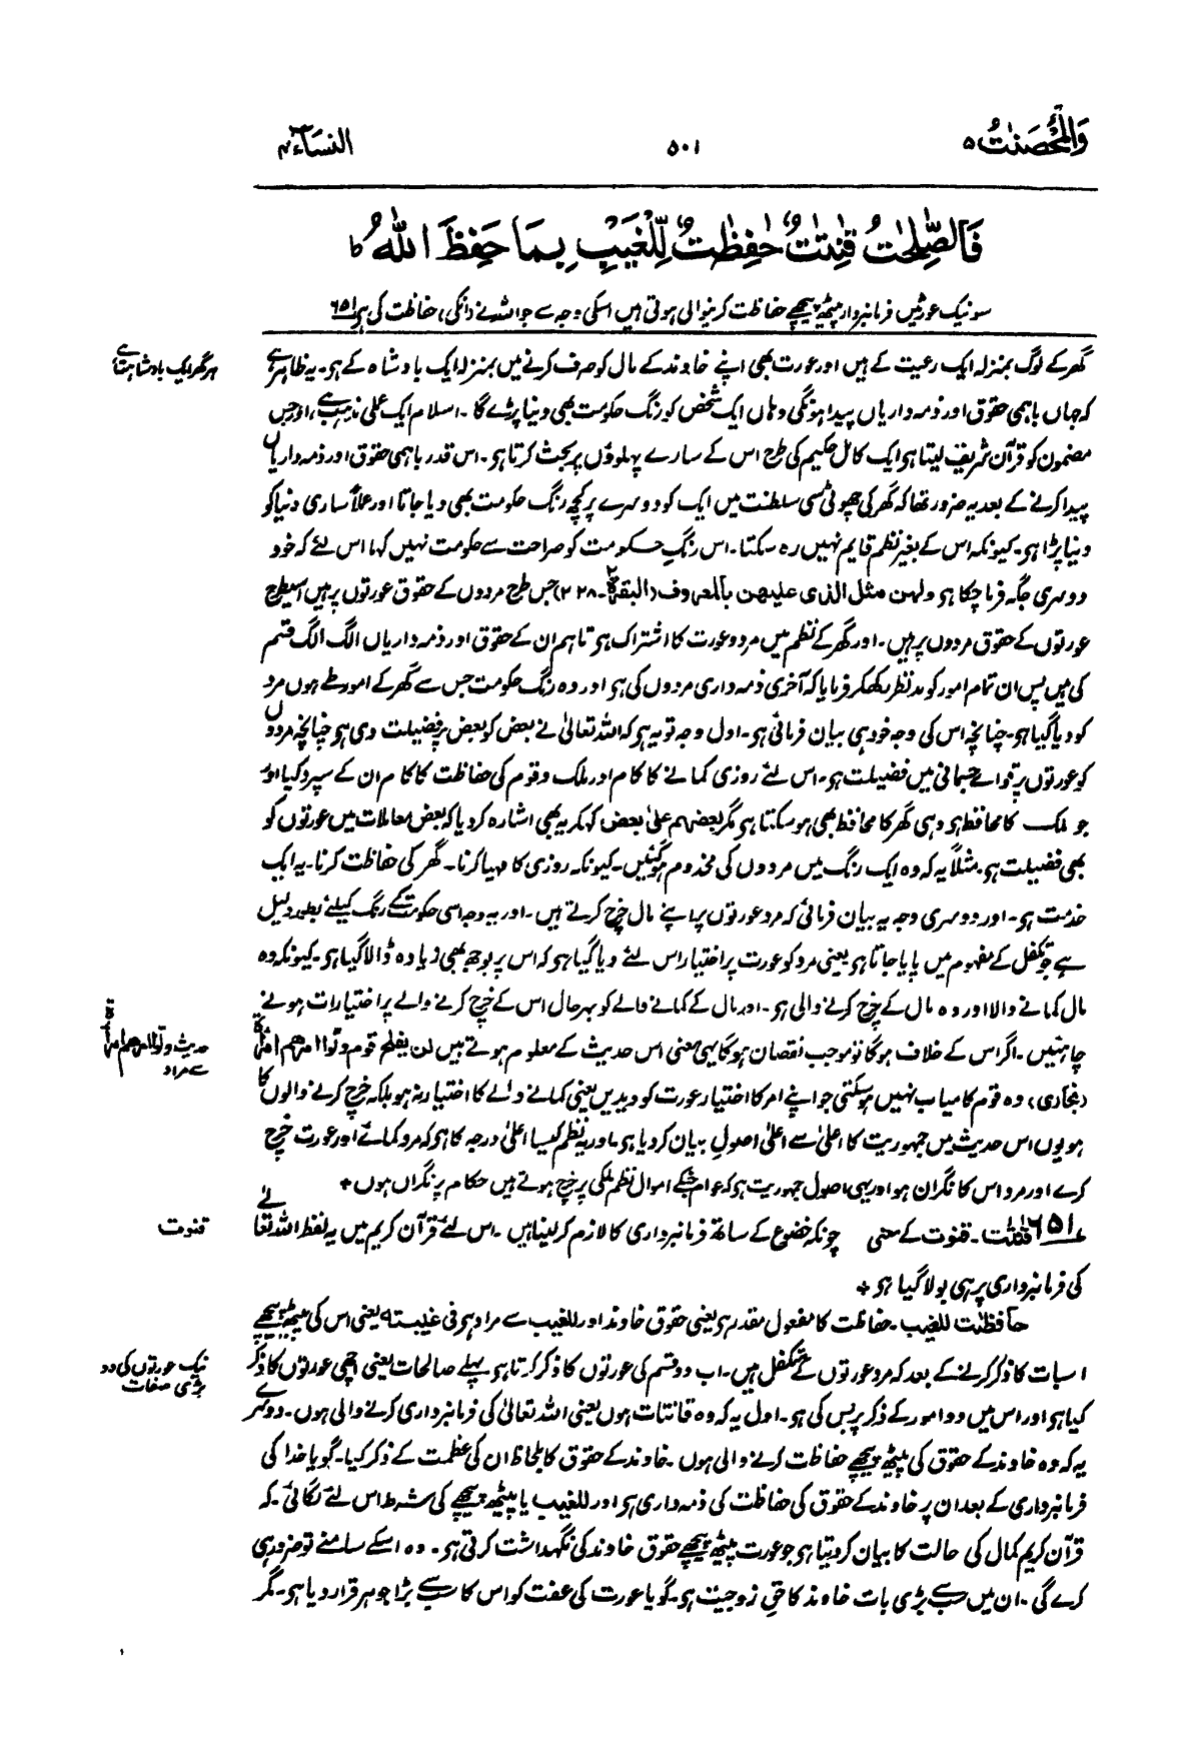 وَالْمُحْصَنٰتُ ۵
۵۰۱
النساء ۴
فَالصّٰلِحٰتُ قٰنِتٰتٌ حٰفِظٰتٌ لِّلْغَيْبِ بِمَا حَفِظَ اللّٰهُ ؕ
سو نیک عورتیں فرمانبردار پیٹھ پیچھے حفاظت کرنیوالی ہوتی ہیں اسکی وجہ سے جو اللہ نے (انکی) حفاظت کی ہے ۶۵۱
گھر کے لوگ بمنزلہ ایک رعیت کے ہیں اور عورت بھی اپنے خاوند کے مال کو صرف کرنے میں بمنزلہ ایک بادشاہ کے ہو۔ یہ ظاہر ہے
ہر گھر ایک بادشاہت ہے
کہ جہاں باہمی حقوق اور ذمہ داریاں پیدا ہونگی وہاں ایک شخص کو رنگ حکومت بھی دینا پڑے گا۔ اسلام ایک عملی مذہب ہے، اور جس
مضمون کو قرآن شریف لیتا ہو ایک کامل حکیم کی طرح اس کے سارے پہلوؤں پر بحث کرتا ہو۔ اس قدر باہمی حقوق اور ذمہ داریاں
پیدا کرنے کے بعد یہ ضرور تھا کہ گھر کی چھوٹی سی سلطنت میں ایک کو دوسرے پر کچھ رنگ حکومت بھی دیا جاتا اور عملاً ساری دنیا کو
دینا پڑا ہو۔ کیونکہ اس کے بغیر نظم قایم نہیں رہ سکتا۔ اس رنگِ حکومت کو صراحت سے حکومت نہیں کہا اس لئے کہ خود
دوسری جگہ فرما چکا ہو ولہن مثل الذی علیھن بالمعروف (البقرۃ ۲۔ ۲۲۸) جس طرح مردوں کے حقوق عورتوں پر ہیں اسیطرح
عورتوں کے حقوق مردوں پر ہیں۔ اور گھر کے نظم میں مرد و عورت کا اشتراک ہو تاہم ان کے حقوق اور ذمہ داریاں الگ الگ قسم
کی ہیں پس ان تمام امور کو مد نظر رکھکر فرمایا کہ آخری ذمہ داری مردوں کی ہو اور وہ رنگ حکومت جس سے گھر کے امور طے ہوں مرد
کو دیا گیا ہو۔ چنانچہ اس کی وجہ خود ہی بیان فرمائی ہو۔ اول وجہ تو یہ ہو کہ اللہ تعالیٰ نے بعض کو بعض پر فضیلت دی ہو چنانچہ مردوں
کو عورتوں پر قوائے جسمانی میں فضیلت ہو۔ اس لئے روزی کمانے کا کام اور ملک و قوم کی حفاظت کا کام ان کے سپرد کیا اور
جو ملک کا محافظ ہو وہی گھر کا محافظ بھی ہو سکتا ہو مگر بعضہم علیٰ بعض کہکر یہ بھی اشارہ کر دیا کہ بعض معاملات میں عورتوں کو
بھی فضیلت ہو۔ مثلاً یہ کہ وہ ایک رنگ میں مردوں کی مخدوم ہو گئیں۔ کیونکہ روزی کا مہیا کرنا۔ گھر کی حفاظت کرنا۔ یہ ایک
خدمت ہو۔ اور دوسری وجہ یہ بیان فرمائی کہ مرد عورتوں پر اپنے مال خرچ کرتے ہیں۔ اور یہ وجہ اسی حکومت کے رنگ کیلئے بطور دلیل
ہے جو تکفل کے مفہوم میں پایا جاتا ہو یعنی مرد کو عورت پر اختیار اس لئے دیا گیا ہو کہ اس پر بوجھ بھی زیادہ ڈالا گیا ہو۔ کیونکہ وہ
مال کمانے والا اور وہ مال کے خرچ کرنے والی ہو۔ اور مال کے کمانے والے کو بہرحال اس کے خرچ کرنے والے پر اختیارات ہونے
چاہئیں۔ اگر اس کے خلاف ہوگا تو موجب نقصان ہوگا یہی معنی اس حدیث کے معلوم ہوتے ہیں لن یفلح قوم ولّوا امرھم امرأۃ
حدیث ولّوا امرھم امرأۃ سے مراد
(بخاری) وہ قوم کامیاب نہیں ہو سکتی جو اپنے امر کا اختیار عورت کو دیدیں یعنی کمانے والے کا اختیار نہ ہو بلکہ خرچ کرنے والوں کا
ہو یوں اس حدیث میں جمہوریت کا اعلیٰ سے اعلیٰ اصول بیان کر دیا ہو۔ اور یہ نظم کیسا اعلیٰ درجہ کا ہو کہ مرد کمائے اور عورت خرچ
کرے اور مرد اس کا نگران ہو اور یہی اصول جمہوریت ہو کہ عوام جنکے اموال نظم ملکی پر خرچ ہوتے ہیں حکام پر نگراں ہوں +
۶۵۱ قٰنتٰت۔ قنوت کے معنی چونکہ خضوع کے ساتھ فرمانبرداری کا لازم کر لینا ہیں۔ اس لئے قرآن کریم میں یہ لفظ اللہ تعالےٰ
قنوت
کی فرمانبرداری پر ہی بولا گیا ہو +
حافظٰت للغیب۔ حفاظت کا مفعول مقدر ہو یعنی حقوق خاوند اور للغیب سے مراد ہو فی غیبتہ یعنی اس کی پیٹھ پیچھے
اس بات کا ذکر کرنے کے بعد کہ مرد عورتوں کے متکفل ہیں۔ اب دو قسم کی عورتوں کا ذکر کرتا ہو پہلے صالحات یعنی اچھی عورتوں کا ذکر
نیک عورتوں کی دو بڑی صفات
کیا ہو اور اس میں دو امور کے ذکر پر بس کی ہو۔ اول یہ کہ وہ قانتات ہوں یعنی اللہ تعالیٰ کی فرمانبرداری کرنے والی ہوں۔ دوسرے
یہ کہ وہ خاوند کے حقوق کی پیٹھ پیچھے حفاظت کرنے والی ہوں۔ خاوند کے حقوق کا بلحاظ ان کی عظمت کے ذکر کیا۔ گویا خدا کی
فرمانبرداری کے بعد ان پر خاوند کے حقوق کی حفاظت کی ذمہ داری ہو اور للغیب یا پیٹھ پیچھے کی شرط اس لئے لگائی۔ کہ
قرآن کریم کمال کی حالت کا بیان کر دیتا ہو جو عورت پیٹھ پیچھے حقوق خاوند کی نگہداشت کرتی ہو۔ وہ اسکے سامنے تو ضرور ہی
کرے گی۔ ان میں سب سے بڑی بات خاوند کا حقِ زوجیت ہو۔ گویا عورت کی عفت کو اس کا سب سے بڑا جوہر قرار دیا ہو۔ مگر